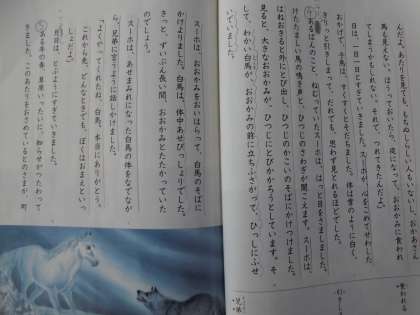 んだよ。あたりを見ても、もちぬしらしい人もいないし、おかあさん
馬も見えない。ほうっておいたら、夜になって、おおかみに食われ
てしまうかもしれない。それで、つれてきたんだよ。」
日は、一日一日とすぎていきました。スーホが、心をこめてせわした
おかげで、子馬は、すくすくとそだちました。体は雪のように白く、
きりっと引きしまって、だれでも、思わず見とれるほどでした。
あるばんのこと、ねむっていたスーホは、はっと目をさましました。
けたたましい馬の鳴き声と、ひつじのさわぎが聞こえます。スーホは、
はねおきると外にとび出し、ひつじのかこいのそばにかけつけました。
見ると、大きなおおかみが、ひつじにとびかかろうとしています。そ
して、わかい白馬が、おおかみの前に立ちふさがって、ひっしにふせ
いでいました。
スーホは、おおかみをおいはらって、白馬のそばに
かけよりました。白馬は、体中あせびっしょりでした。
きっと、ずいぶん長い間、おおかみとたたかっていた
のでしょう。
スーホは、あせまみれになった白馬の体をなでなが
ら、兄弟に言うように話しかけました。
「よくやってくれたね、白馬。本当にありがとう。
これから先、どんなときでも、ぼくはおまえといっ
しょだよ。」
月日は、とぶようにすぎていきました。
ある年の春、草原いったいに、知らせがつたわって
きました。このあたりをおさめているとのさまが、町
食われる
引きし
兄弟